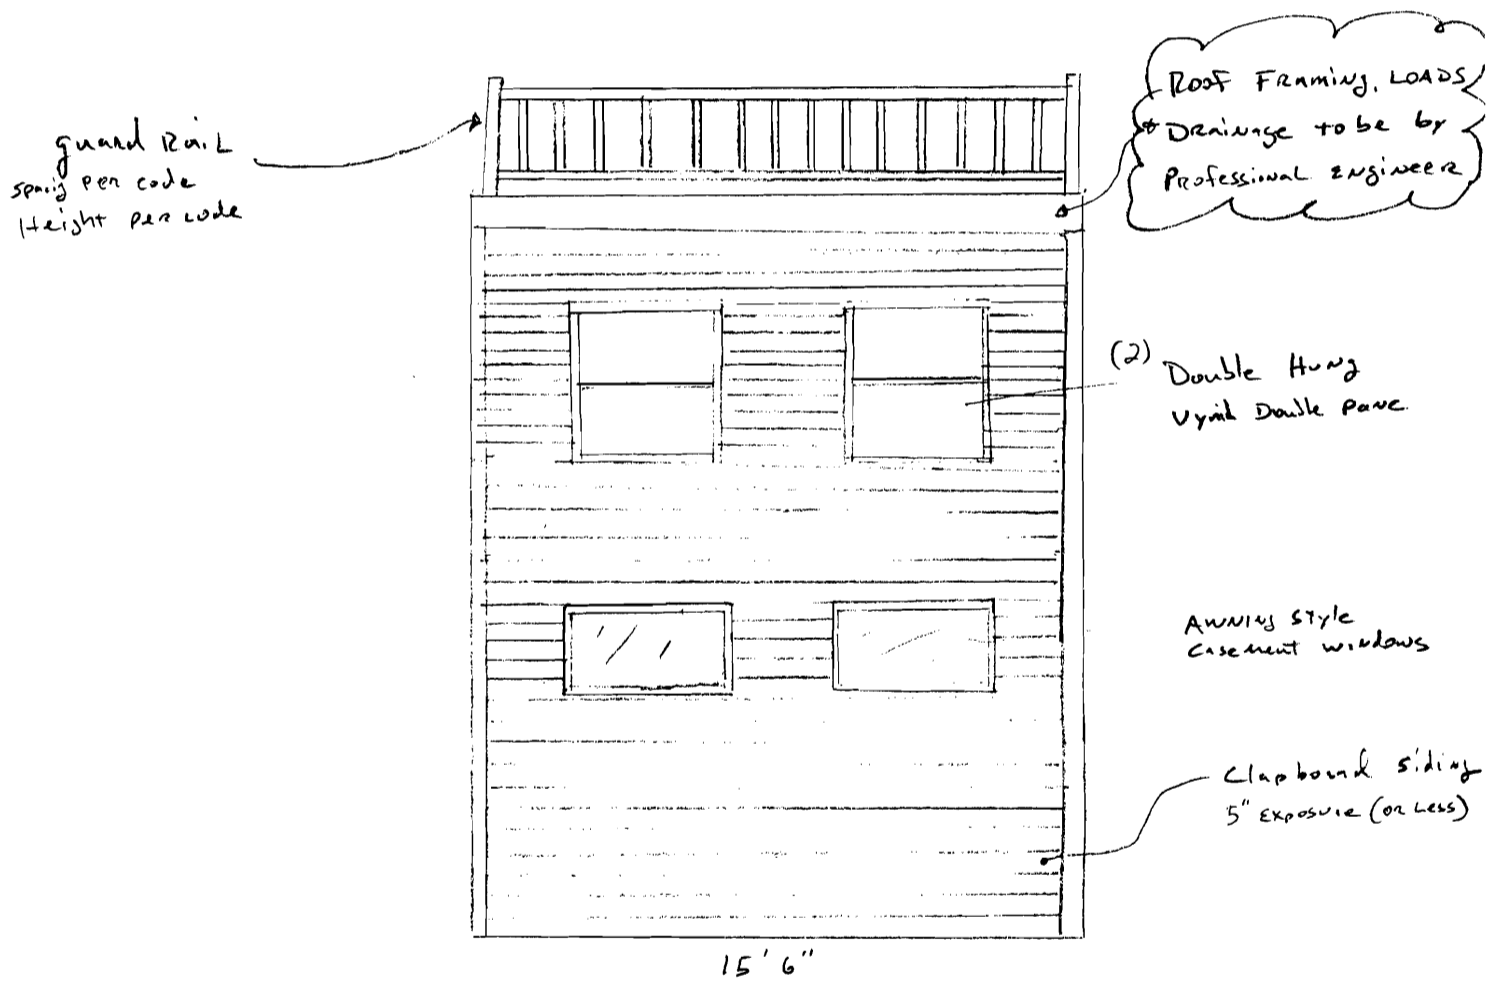 guard Rail
spacig per code
Height per code
Roof Framing, LOADS
+ Drainage to be by
Professional Engineer
(2) Double Hung
Vynil Double Pane
Awning Style
Casement windows
Clapboard siding
5" Exposure (or Less)
15' 6"